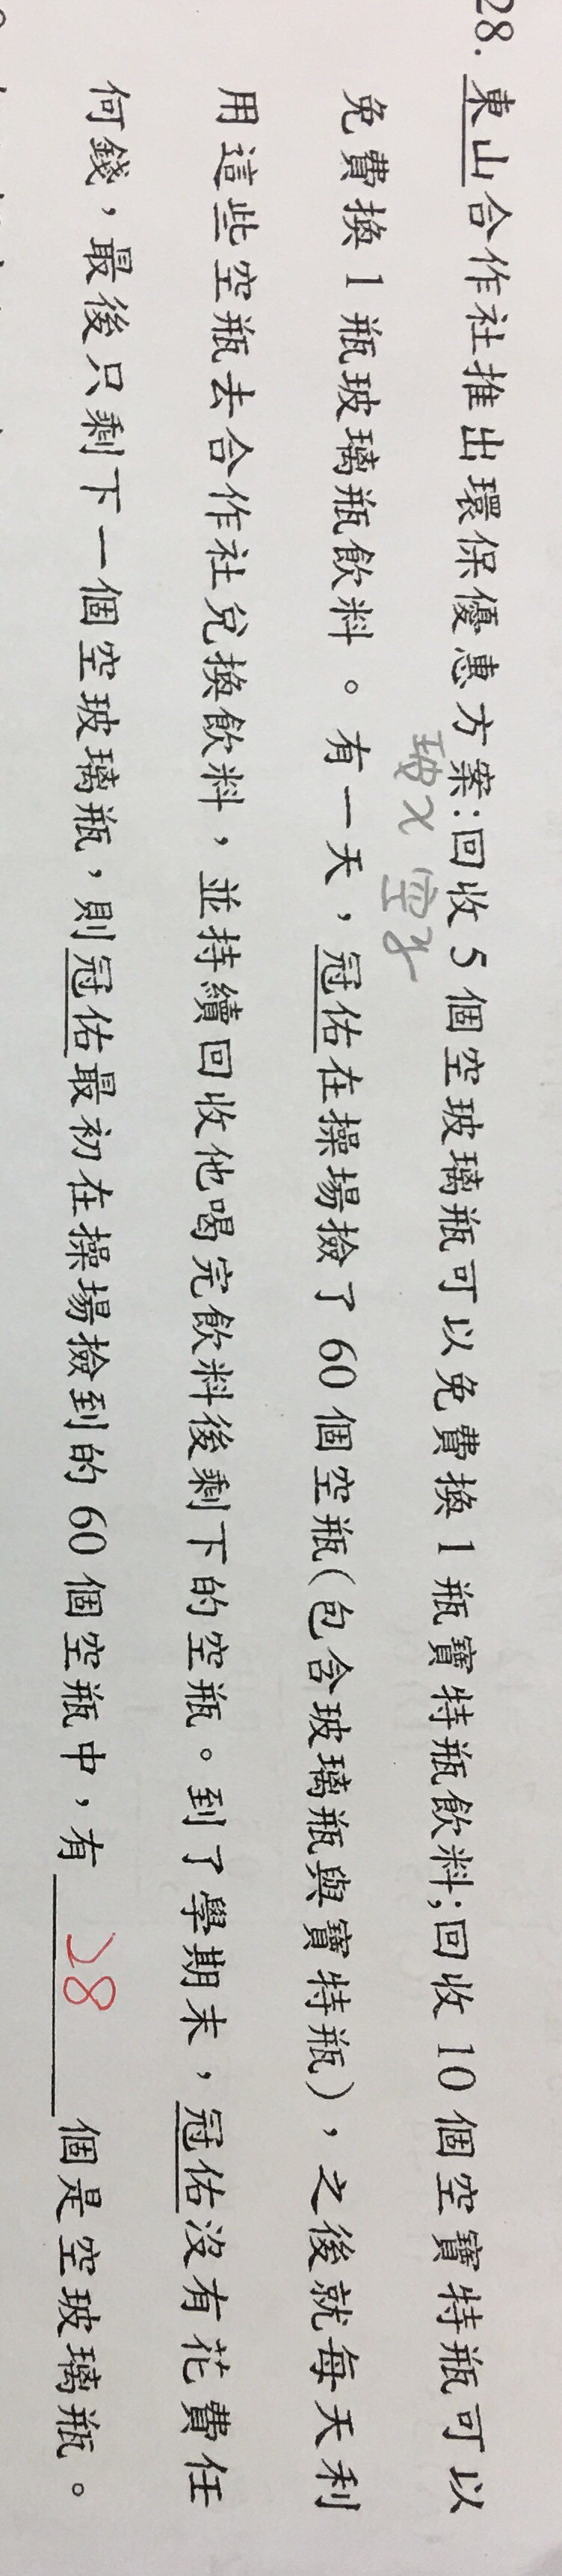 28. 東山合作社推出環保優惠方案:回收 5 個空玻璃瓶可以免費換 1 瓶寶特瓶飲料;回收 10 個空寶特瓶可以
玻x 空y
免費換 1 瓶玻璃瓶飲料。有一天,冠佑在操場撿了 60 個空瓶(包含玻璃瓶與寶特瓶),之後就每天利
用這些空瓶去合作社兌換飲料,並持續回收他喝完飲料後剩下的空瓶。到了學期末,冠佑沒有花費任
何錢,最後只剩下一個空玻璃瓶,則冠佑最初在操場撿到的 60 個空瓶中,有 28 個是空玻璃瓶。